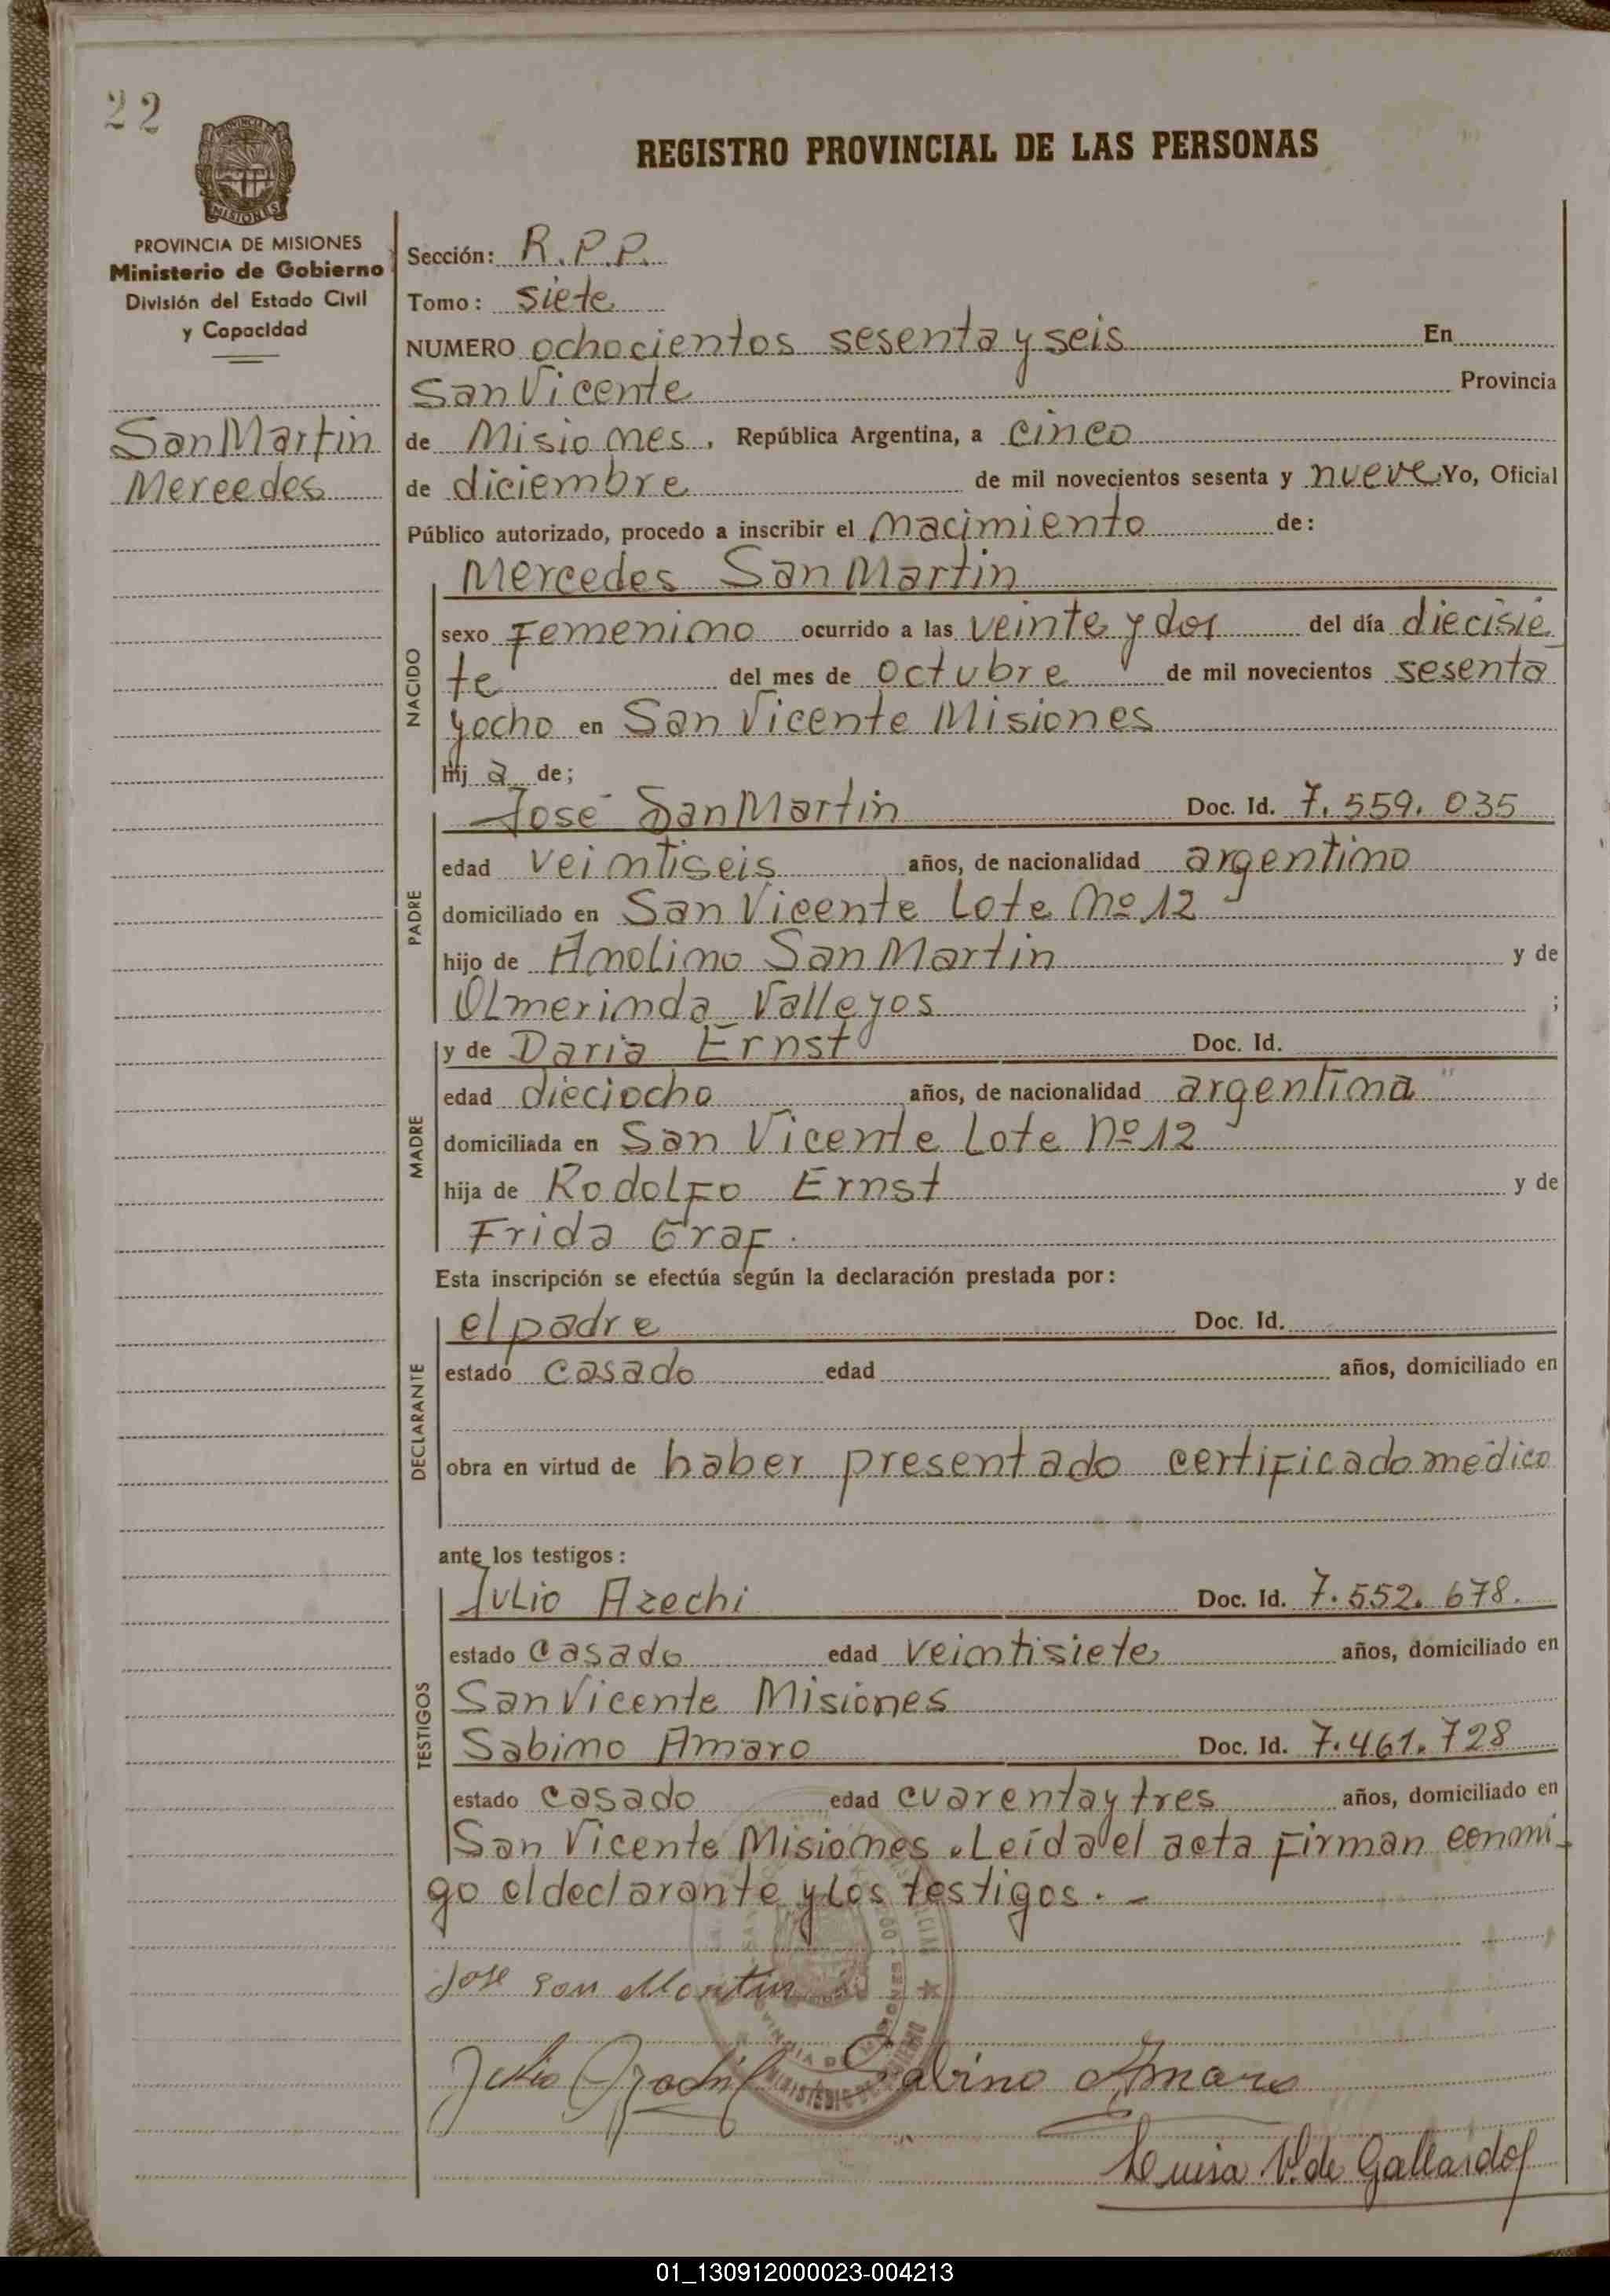 22
PROVINCIA DE
MISIONES
PROVINCIA DE MISIONES
Ministerio de Gobierno
División del Estado Civil
y Capacidad
San Martin
Mercedes
REGISTRO PROVINCIAL DE LAS PERSONAS
Sección: R.P.P.
Tomo: siete
NUMERO ochocientos sesenta y seis En
San Vicente Provincia
de Misiones, República Argentina, a cinco
de diciembre de mil novecientos sesenta y nueve Yo, Oficial
Público autorizado, procedo a inscribir el nacimiento de:
Mercedes San Martin
NACIDO
sexo Femenino ocurrido a las veinte y dos del día diecisie
te del mes de octubre de mil novecientos sesenta
y ocho en San Vicente Misiones
hij a de;
José San Martin Doc. Id. 7.559.035
PADRE
edad veintiseis años, de nacionalidad argentino
domiciliado en San Vicente Lote Nº 12
hijo de Anolino San Martin y de
Olmerinda Vallejos ;
y de Daria Ernst Doc. Id.
MADRE
edad dieciocho años, de nacionalidad argentina
domiciliada en San Vicente Lote Nº 12
hija de Rodolfo Ernst y de
Frida Graf.
Esta inscripción se efectúa según la declaración prestada por:
el padre Doc. Id.
DECLARANTE
estado casado edad años, domiciliado en
obra en virtud de haber presentado certificado médico
ante los testigos:
Julio Azechi Doc. Id. 7.552.678.
TESTIGOS
estado casado edad veintisiete años, domiciliado en
San Vicente Misiones
Sabino Amaro Doc. Id. 7.461.728
estado casado edad cuarenta y tres años, domiciliado en
San Vicente Misiones. Leída el acta firman conmi-
go el declarante y los testigos. -
Jose San Martin
Julio Sabino Amaro
Luisa V. de Gallardo
01_130912000023-004213